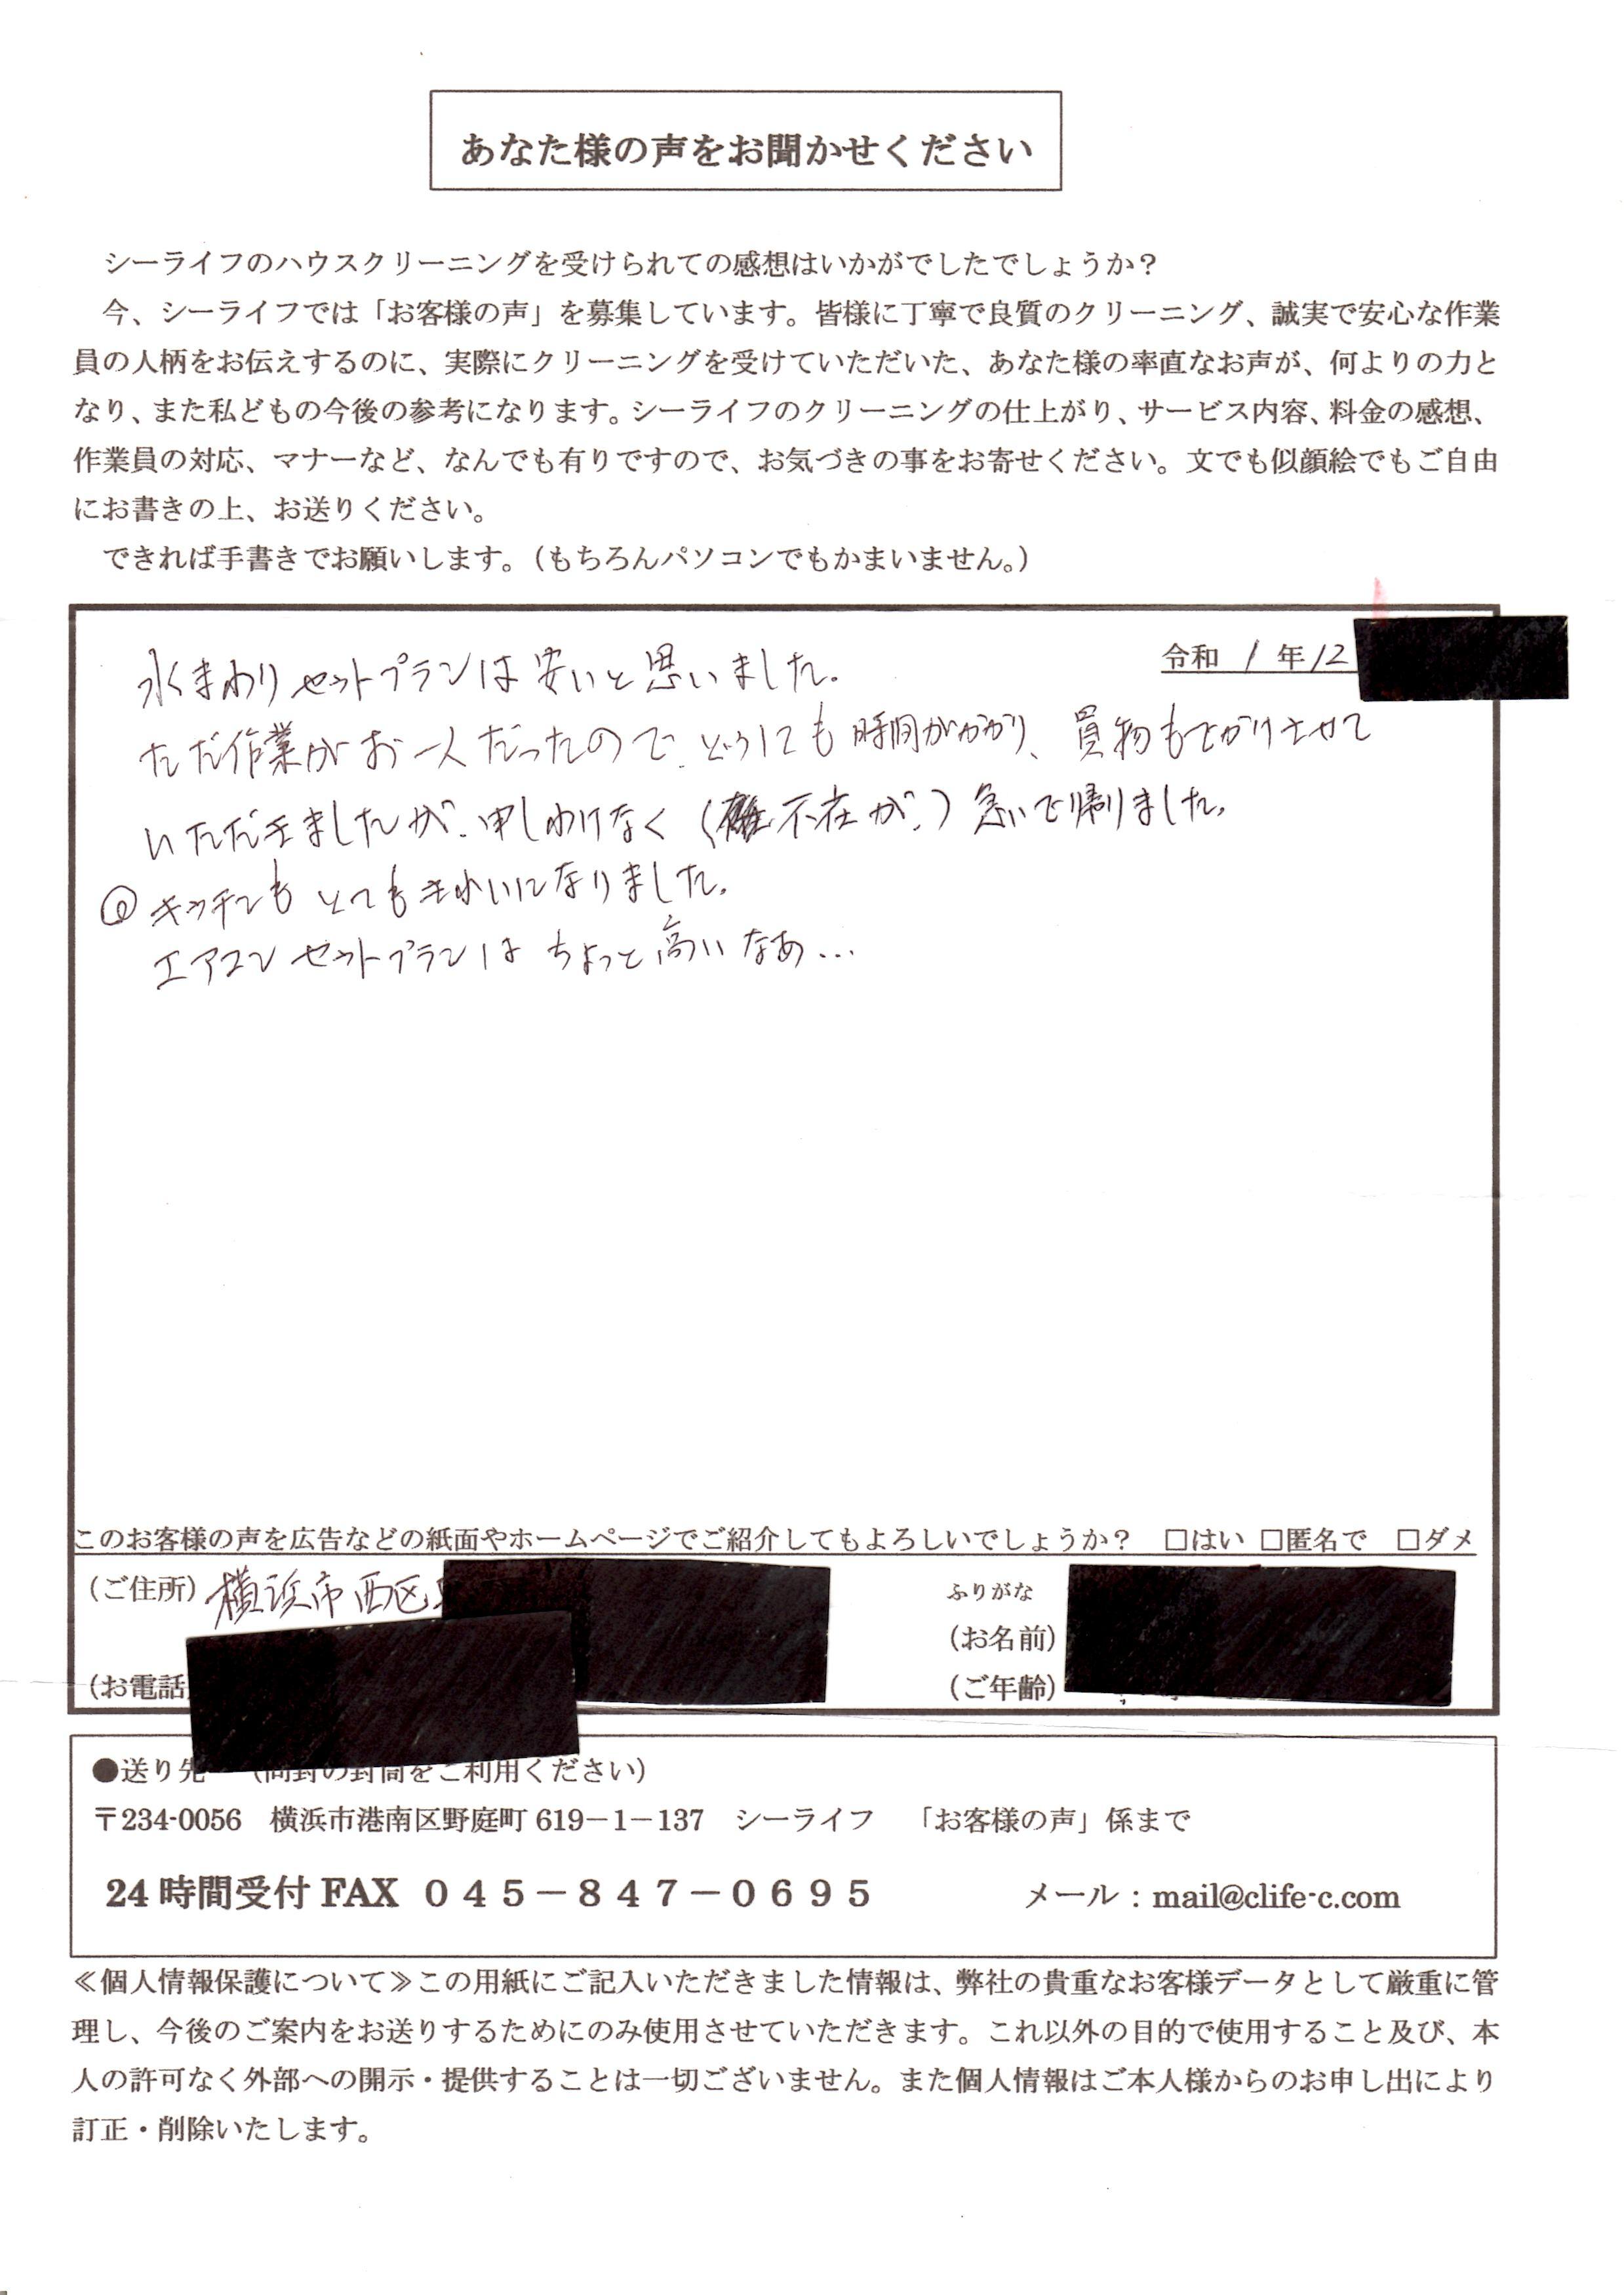 あなた様の声をお聞かせください
シーライフのハウスクリーニングを受けられての感想はいかがでしたでしょうか？
今、シーライフでは「お客様の声」を募集しています。皆様に丁寧で良質のクリーニング、誠実で安心な作業
員の人柄をお伝えするのに、実際にクリーニングを受けていただいた、あなた様の率直なお声が、何よりの力と
なり、また私どもの今後の参考になります。シーライフのクリーニングの仕上がり、サービス内容、料金の感想、
作業員の対応、マナーなど、なんでも有りですので、お気づきの事をお寄せください。文でも似顔絵でもご自由
にお書きの上、お送りください。
できれば手書きでお願いします。（もちろんパソコンでもかまいません。）
令和 1 年 12
水まわりセットプランは安いと思いました。
ただ作業がお一人だったので、どうしても時間がかかり、買物も させて
いただきましたが、申しわけなく（不在が。）急いで帰りました。
キッチンもとてもきれいになりました。
エアコンセットプランはちょっと高いなあ…
このお客様の声を広告などの紙面やホームページでご紹介してもよろしいでしょうか？ □はい □匿名で □ダメ
（ご住所） 横浜市西区
ふりがな
（お名前）
（お電話
（ご年齢）
●送り先 （同封の封筒をご利用ください）
〒234-0056 横浜市港南区野庭町 619－1－137 シーライフ 「お客様の声」係まで
24 時間受付 FAX ０４５－８４７－０６９５ メール：mail@clife-c.com
≪個人情報保護について≫この用紙にご記入いただきました情報は、弊社の貴重なお客様データとして厳重に管
理し、今後のご案内をお送りするためにのみ使用させていただきます。これ以外の目的で使用すること及び、本
人の許可なく外部への開示・提供することは一切ございません。また個人情報はご本人様からのお申し出により
訂正・削除いたします。